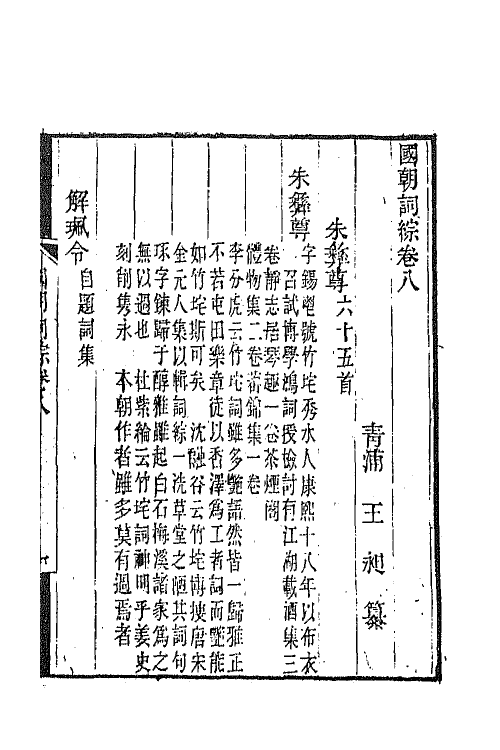 國朝詞綜卷八
青浦　王　昶　纂
朱彝尊六十五首
朱彝尊字錫鬯號竹垞秀水人康熙十八年以布衣
召試博學鴻詞授檢討有江湖載酒集三
卷靜志居琴趣一卷茶煙閣
體物集二卷蕃錦集一卷
李分虎云竹垞詞雖多艷語然皆一歸雅正
不若屯田樂章徒以香澤爲工者詞而艷能
如竹垞斯可矣　沈融谷云竹垞博搜唐宋
金元人集以輯詞綜一洗草堂之陋其詞句
琢字鍊歸于醇雅雖起白石梅溪諸家爲之
無以過也　杜紫綸云竹垞詞神明乎姜史
刻削雋永　本朝作者雖多莫有過焉者
解珮令自題詞集
國朝詞綜卷八